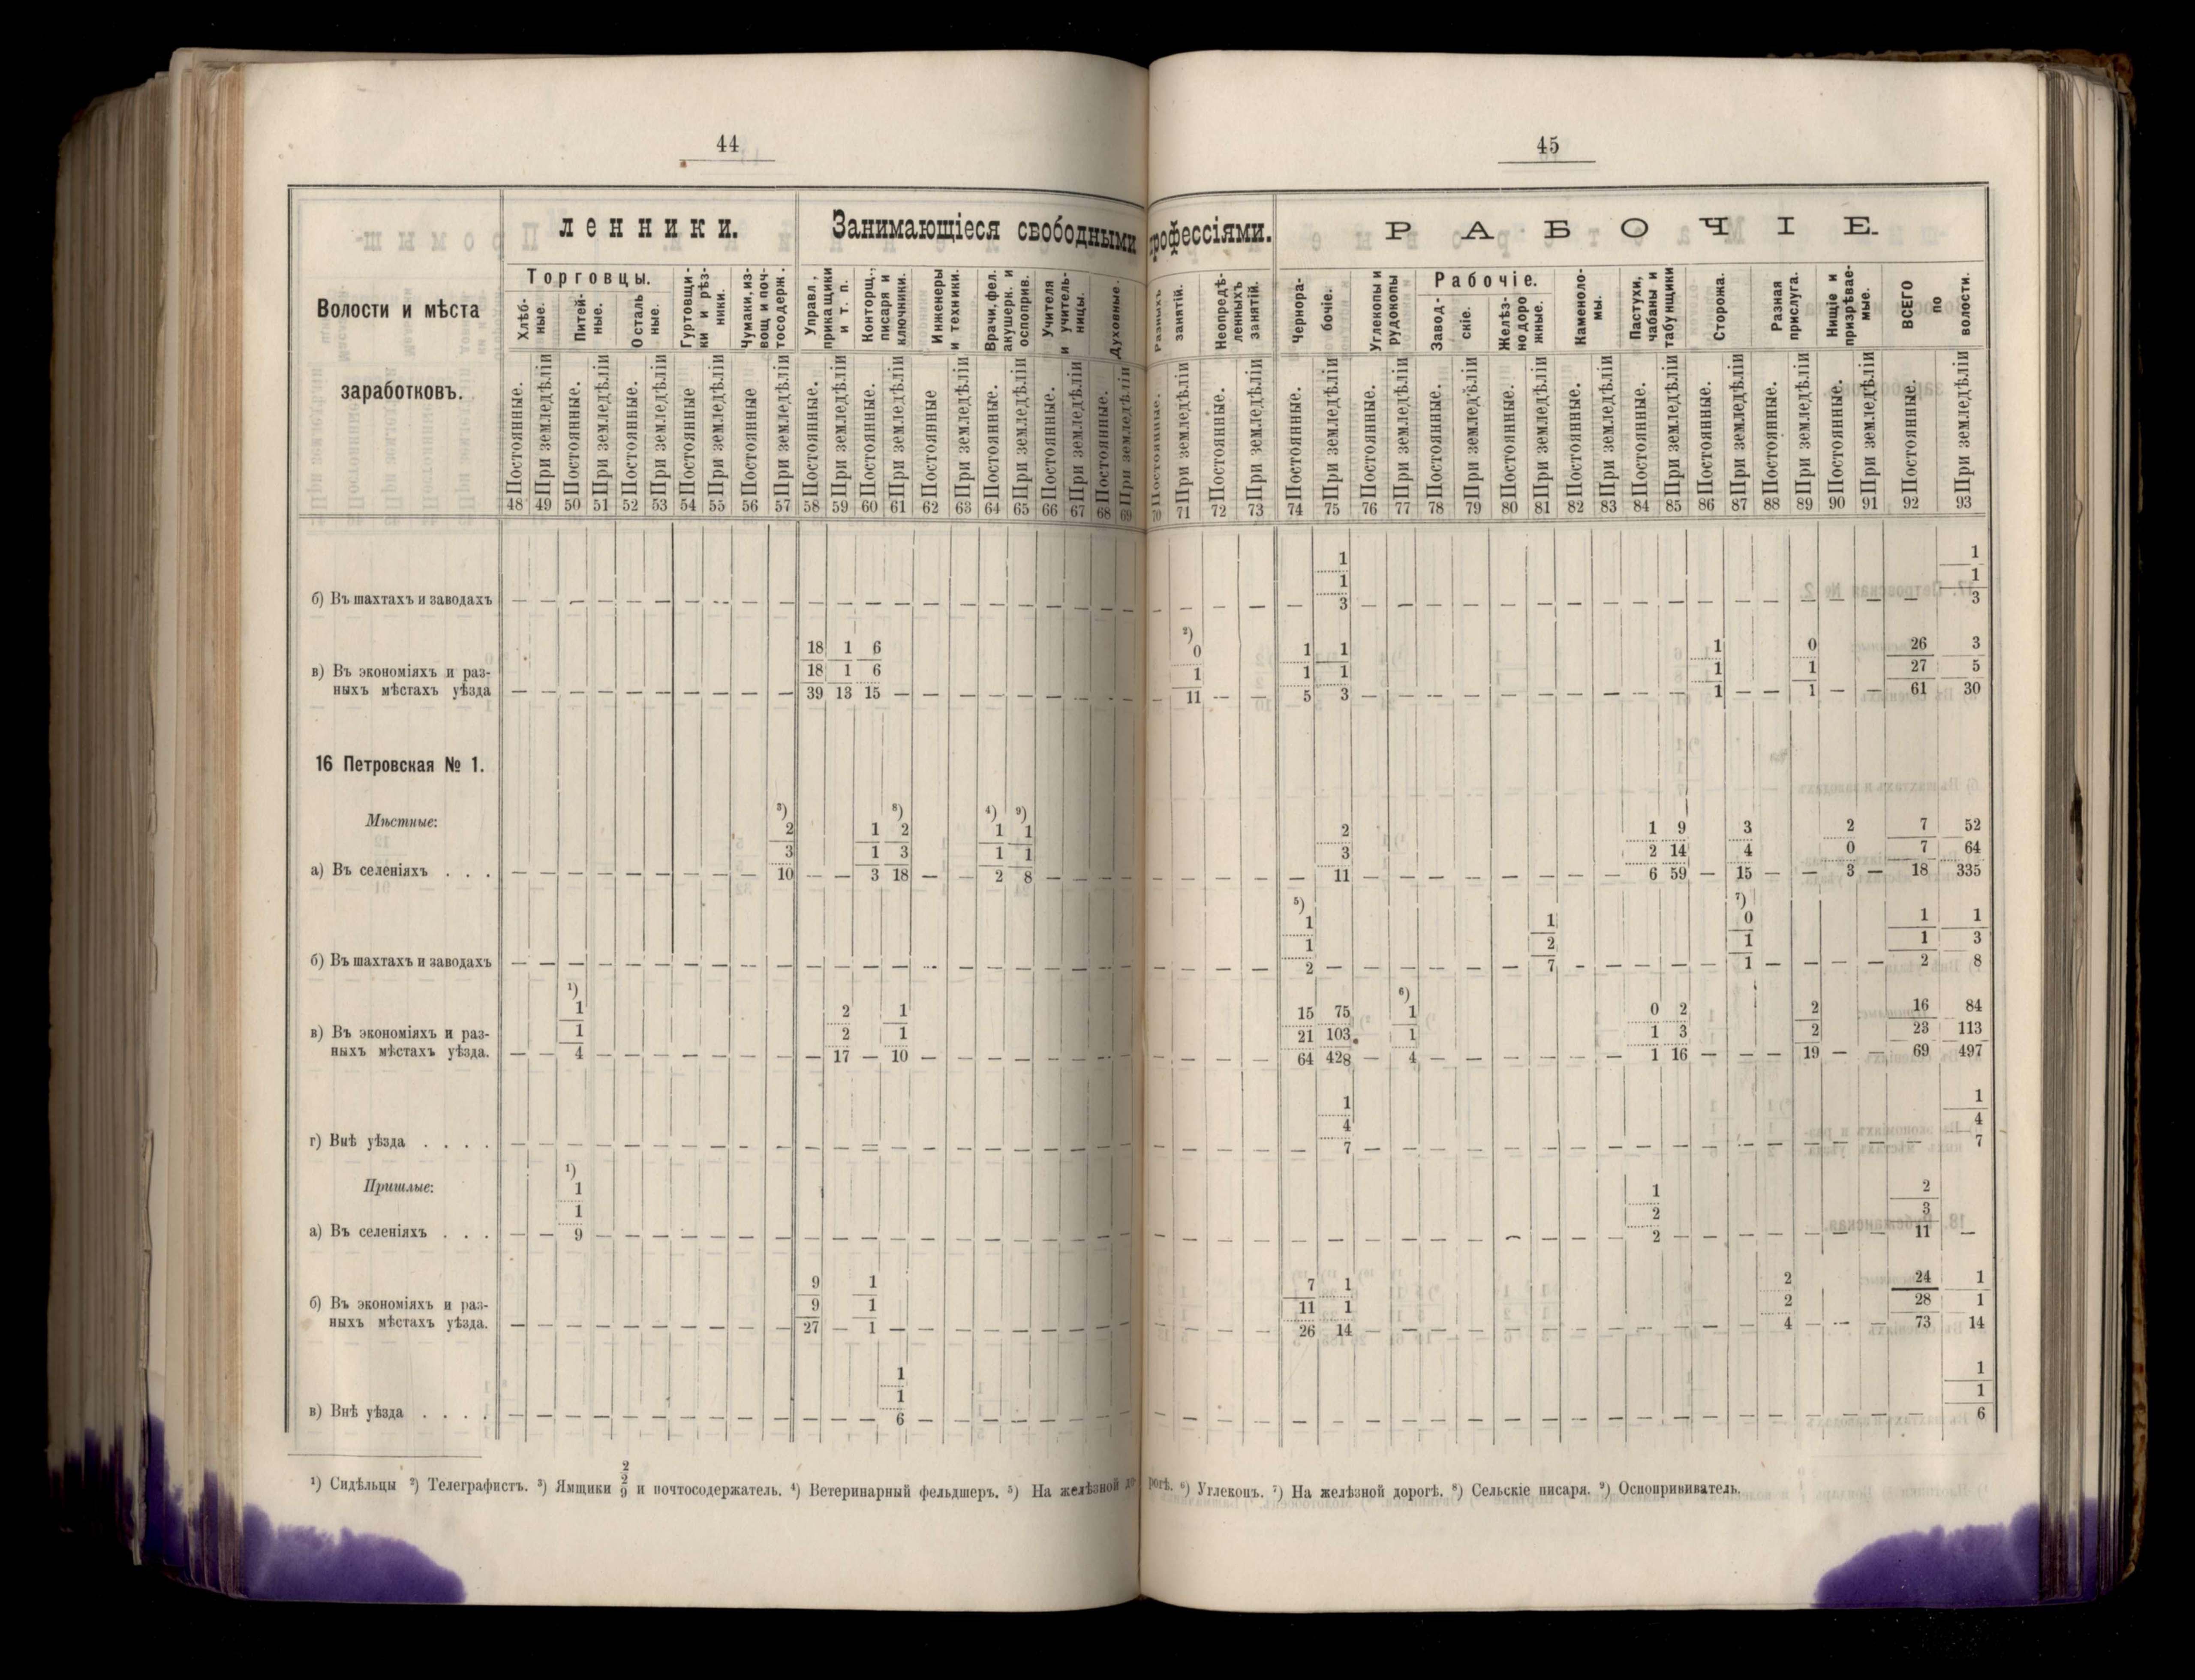 44
ленники.
Занимающіеся свободными
Волости и мѣста
заработковъ.
Торговцы.
Хлѣб-
ные.
Питей-
ные.
Осталь
ные.
Гуртовщи-
ки и рѣз-
ники.
Чумаки, из-
вощ и поч-
тосодерж.
Управл.,
прикащики
и т. п.
Конторщ.,
писаря и
ключники.
Инженеры
и техники.
Врачи, фел.
акушерк. и
оспоприв.
Учителя
и учитель-
ницы.
Духовные.
Постоянные. При земледѣліи Постоянные. При земледѣліи Постоянные. При земледѣліи Постоянные При земледѣліи Постоянные При земледѣліи Постоянные. При земледѣліи Постоянные. При земледѣліи Постоянные При земледѣліи Постоянные. При земледѣліи Постоянные. При земледѣліи Постоянные. При земледѣліи
48 49 50 51 52 53 54 55 56 57 58 59 60 61 62 63 64 65 66 67 68 69
б) Въ шахтахъ и заводахъ — — — — — — — — — — — — — — — — — — — — — —
18 1 6
18 1 6
в) Въ экономіяхъ и раз-
ныхъ мѣстахъ уѣзда — — — — — — — — — — 39 13 15 — — — — — — — — —
16 Петровская № 1.
³) ⁸) ⁴) ⁹)
Мѣстные: 2 1 2 1 1
3 1 3 1 1
а) Въ селеніяхъ . . . — — — — — — — — — 10 — — 3 18 — — 2 8 — — — —
б) Въ шахтахъ и заводахъ — — — — — — — — — — — — — — — — — — — — — —
¹)
1 2 1
в) Въ экономіяхъ и раз- 1 2 1
ныхъ мѣстахъ уѣзда. — — 4 — — — — — — — — 17 — 10 — — — — — — — —
г) Внѣ уѣзда . . . . — — — — — — — — — — — — — — — — — — — — — —
¹)
Пришлые: 1
1
а) Въ селеніяхъ . . . — — 9 — — — — — — — — — — — — — — — — — — —
9 1
б) Въ экономіяхъ и раз- 9 1
ныхъ мѣстахъ уѣзда. — — — — — — — — — — 27 — 1 — — — — — — — — —
1
1
в) Внѣ уѣзда . . . . — — — — — — — — — — — — — 6 — — — — — — — —
¹) Сидѣльцы ²) Телеграфистъ. ³) Ямщики 2/2/9 и почтосодержатель. ⁴) Ветеринарный фельдшеръ. ⁵) На желѣзной до-
45
профессіями.
РАБОЧІЕ.
Разныхъ
занятій.
Неопредѣ-
ленныхъ
занятій.
Чернора-
бочіе.
Углекопы и
рудокопы
Рабочіе.
Завод-
скіе.
Желѣз-
нодоро
жные.
Каменоло-
мы.
Пастухи,
чабаны и
табунщики
Сторожа.
Разная
прислуга.
Нищіе и
призрѣвае-
мые.
ВСЕГО
по
волости.
Постоянные. При земледѣліи Постоянные. При земледѣліи Постоянные. При земледѣліи Постоянные. При земледѣліи Постоянные. При земледѣліи Постоянные. При земледѣліи Постоянные. При земледѣліи Постоянные. При земледѣліи Постоянные. При земледѣліи Постоянные. При земледѣліи Постоянные. При земледѣліи Постоянные. При земледѣліи
70 71 72 73 74 75 76 77 78 79 80 81 82 83 84 85 86 87 88 89 90 91 92 93
1 1
1 1
— — — — — 3 — — — — — — — — — — — — — — — — — 3
²)
0 1 1 1 0 26 3
1 1 1 1 1 27 5
— 11 — — 5 3 — — — — — — — — — — 1 — — 1 — — 61 30
2 1 9 3 2 7 52
3 2 14 4 0 7 64
— — — — — 11 — — — — — — — — 6 59 — 15 — — 3 — 18 335
⁵) ⁷)
1 1 0 1 1
1 2 1 1 3
— — — — 2 — — — — — — 7 — — — — — 1 — — — — 2 8
⁶)
15 75 1 0 2 2 16 84
21 103 1 1 3 2 23 113
— — — — 64 428 — 4 — — — — — — 1 16 — — — 19 — — 69 497
1 1
4 4
— — — — — 7 — — — — — — — — — — — — — — — — — 7
1 2
2 3
— — — — — — — — — — — — — — 2 — — — — — — — 11 —
7 1 2 24 1
11 1 2 28 1
— — — — 26 14 — — — — — — — — — — — — 4 — — — 73 14
1
1
— — — — — — — — — — — — — — — — — — — — — — — 6
рогѣ. ⁶) Углекопъ. ⁷) На желѣзной дорогѣ. ⁸) Сельскіе писаря. ⁹) Оспопрививатель.